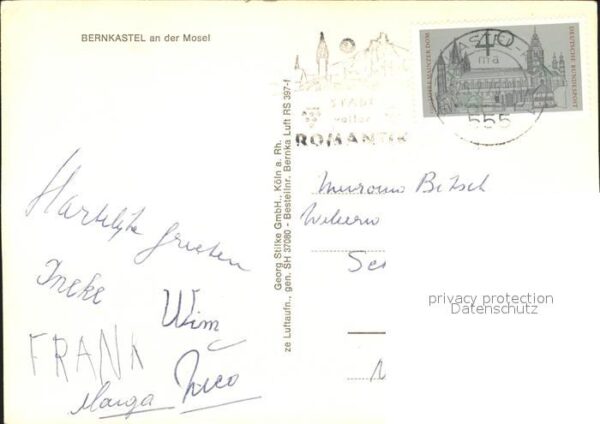 BERNKASTEL an der Mosel
Hartelijke groeten
Ineke
Wim
FRANK
Marga
Georg Stilke GmbH., Köln a. Rh.
ze Luftaufn., gen. SH 37080 - Bestellnr. Bernka Luft RS 397-f
STADT
voller
ROMANTIK
40
MAINZER DOM
DEUTSCHE BUNDESPOST
555
Bitsch
privacy protection
Datenschutz